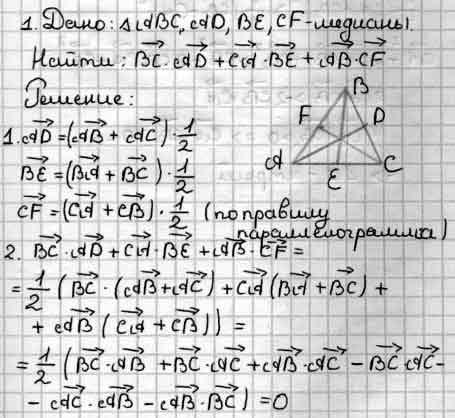 1. Дано: △ABC, AD, BE, CF-медианы.
Найти: BC⃗·AD⃗+CA⃗·BE⃗+AB⃗·CF⃗
Решение:
1. AD⃗=(AB⃗+AC⃗)·1/2
BE⃗=(BA⃗+BC⃗)·1/2
CF⃗=(CA⃗+CB⃗)·1/2 (по правилу
параллелограмма)
B
F
D
A
C
E
2. BC⃗·AD⃗+CA⃗·BE⃗+AB⃗·CF⃗=
=1/2(BC⃗·(AB⃗+AC⃗)+CA⃗(BA⃗+BC⃗)+
+AB⃗(CA⃗+CB⃗))=
=1/2(BC⃗·AB⃗+BC⃗·AC⃗+AB⃗·AC⃗-BC⃗·AC⃗-
-AC⃗·AB⃗-AB⃗·BC⃗)=0